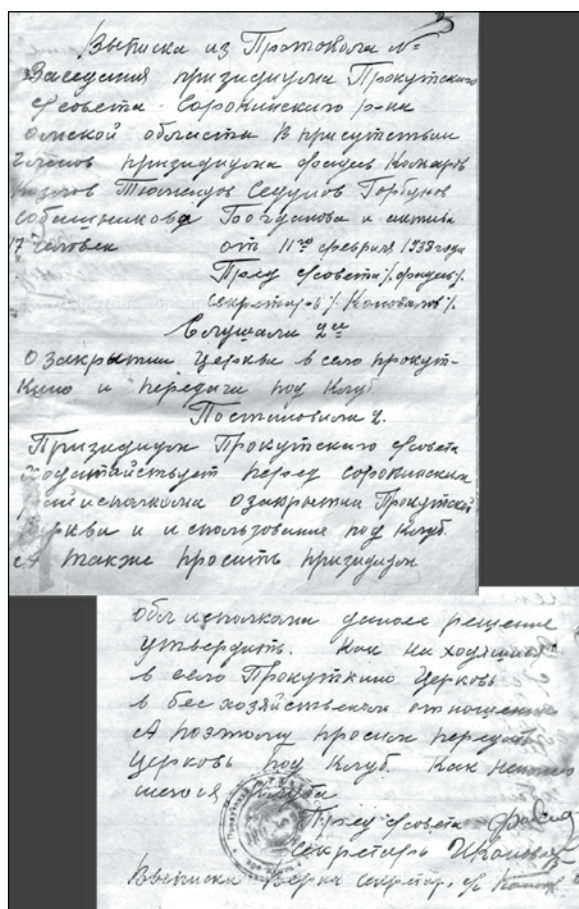 3
Выписка из Протокола №=
Заседания призидиума Прокутского
с/совета Сорокинского р-на
омской области В присутствии
Членов призидиума Комаров
Козлов Горбунов
Богданова и актива
17 человек от 11го февраля 1938 года
Пред с/совета
секретарь /. Коновалов /.
Слушали 2ое
о закрытии Церкви в село прокут-
кино и передачи под Клуб
Постановили 2.
Призидиум Прокутского с/совета
ходатайствует перед сорокинским
райисполкома о закрытии Прокутской
Церкви и использование под Клуб.
А также просить призидиум
облисполкома данное решение
утвердить. Как на ходящийся
в село Прокуткино Церковь
в бесхозяйственном отношение
А поэтому просим передать
Церковь под Клуб. Как неимею
щегося Клуба
Пред с/совета
Секретарь
Выписка Верна секретарь с/с